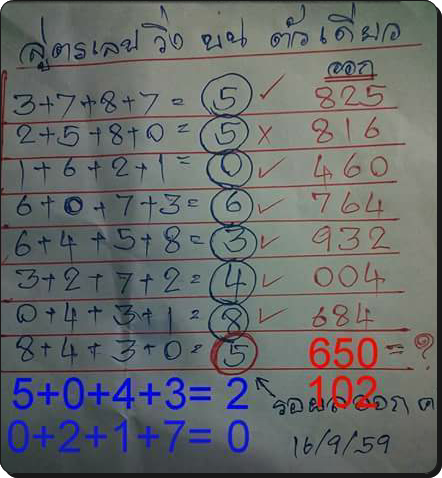 สูตรเลขวิ่ง บน ตัวเดียว
ออก
3+7+8+7= 5 ✓ 825
2+5+8+0= 5 × 816
1+6+2+1= 0 ✓ 460
6+0+7+3= 6 ✓ 764
6+4+5+8= 3 ✓ 932
3+2+7+2= 4 ✓ 004
0+4+3+1= 8 ✓ 684
8+4+3+0= 5 650=?
5+0+4+3= 2 102
รอผลออก
0+2+1+7= 0 16/9/59